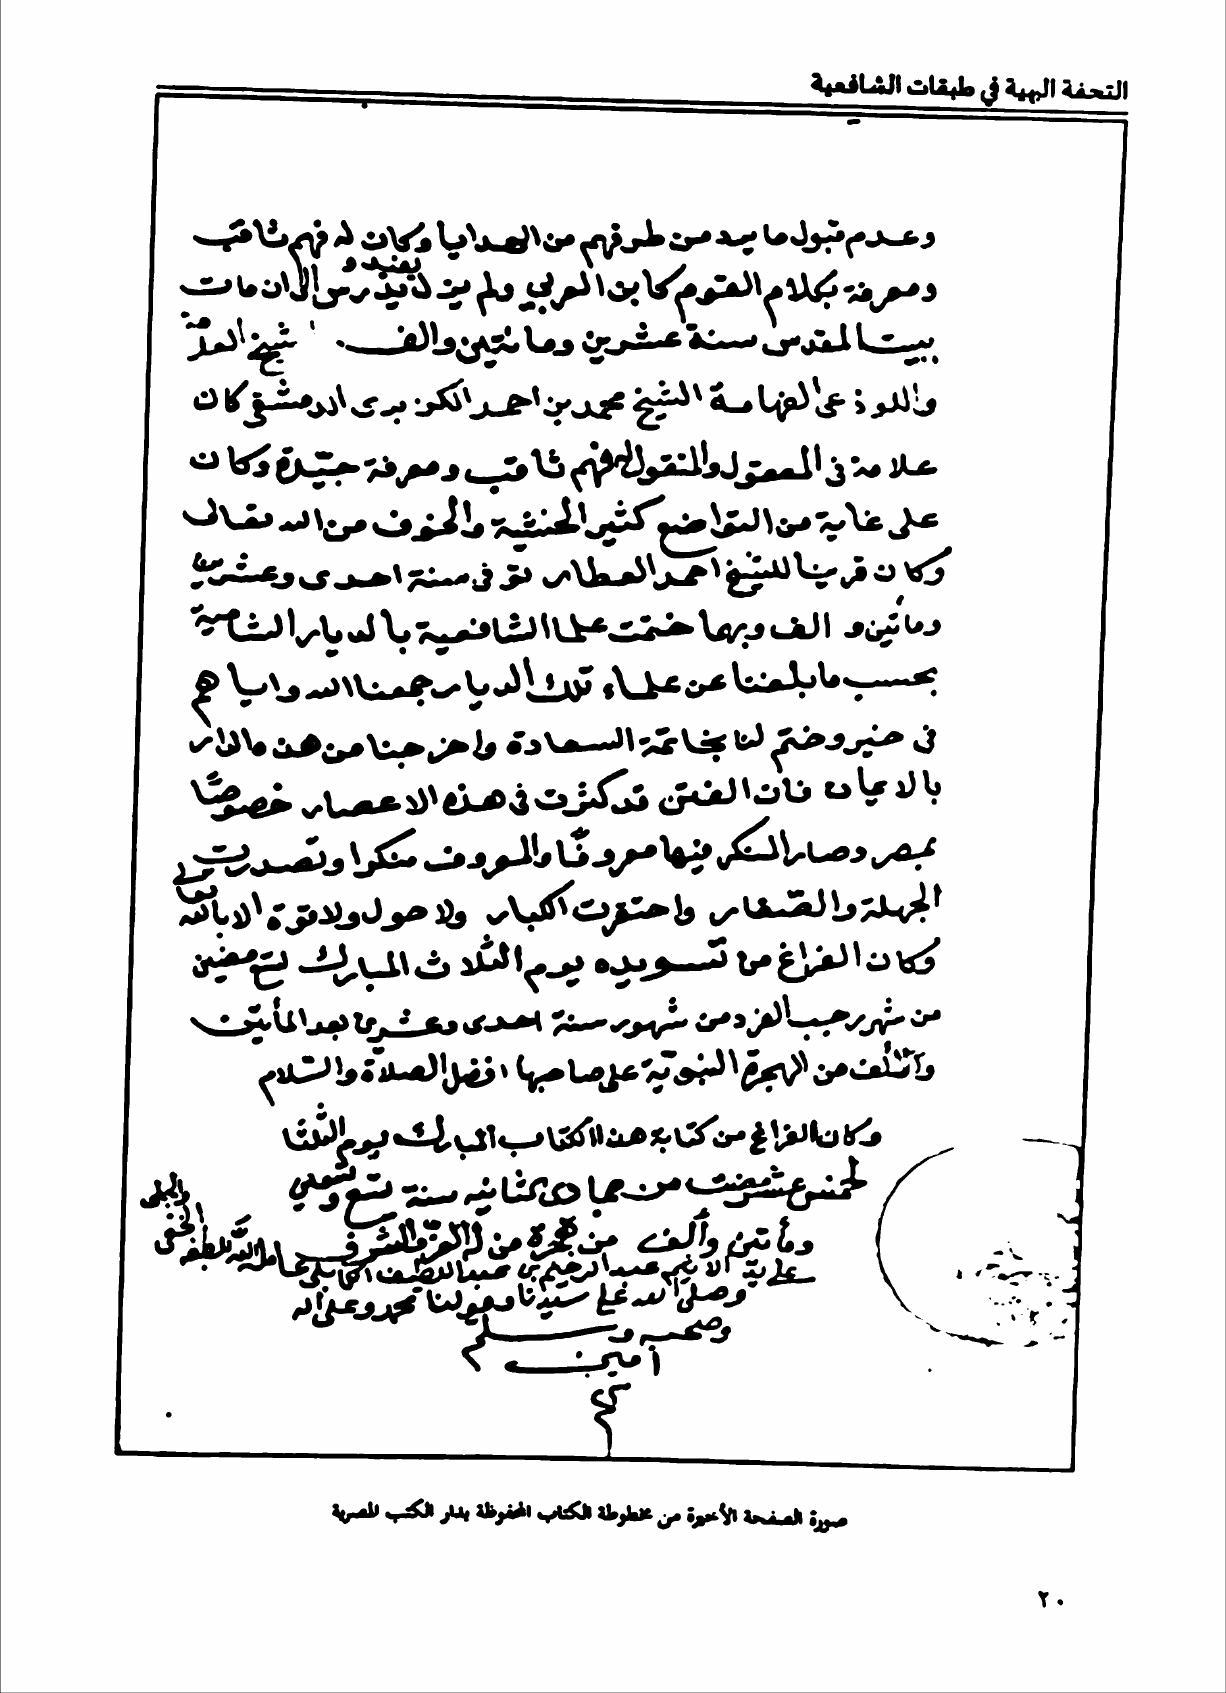 التحفة البهية في طبقات الشافعية
وعدم قبول ما يرد من طرفهم من الهدايا وكان له فهم ثاقب
ومعرفة بكلام القوم كابن العربي ولم يزل يفيد ويدرس الى ان مات
ببيت المقدس سنة عشرين ومائتين والف. شيخ العلامة
واللوذعي الفهامة الشيخ محمد بن احمد الكزبرى الدمشقي كان
علامة فى المعقول والمنقول له فهم ثاقب ومعرفة جيّدة وكان
على غاية من التواضع كثير الخشية والخوف من الله تعالى
وكان قرينا للشيخ احمد العطار توفى سنة احدى وعشرين
ومأتين والف وبها ختمت علما الشافعية بالديار الشامية
بحسب ما بلغنا عن علماء تلك الديار جمعنا الله واياهم
فى خير وختم لنا بخاتمة السعادة واخرجنا من هذه الدار
بالايمان فان الفتن قد كثرت فى هذه الاعصار خصوصًا
بمصر وصار المنكر فيها معروفًا والمعروف منكرا وتصدرت
الجهلة والصّغار واحتقرت الكبار ولا حول ولا قوة الا بالله
وكان الفراغ من تسويده يوم الثلاث المبارك لتسع مضين
من شهر رجب الفرد من شهور سنة احدى وعشرين بعد المأتين
وألف من الهجرة النبويّة على صاحبها افضل الصلاة والسّلام
وكان الفراغ من كتابة هذا الكتاب المبارك يوم الثلثا
لخمس عشر مضت من جمادى ثانيه سنة تسع وتسعين
ومأتين وألف من هجرة من له العز والشرف
على يد الاثيم عبد الرحيم بن عبد اللطيف عامله الله بلطفه الخفى والجلى
وصلى الله على سيّدنا ومولنا محمد وعلى اله
وصحبه وسلم
امين
م
صورة الصفحة الأخيرة من مخطوطة الكتاب المحفوظة بدار الكتب المصرية
٢٠